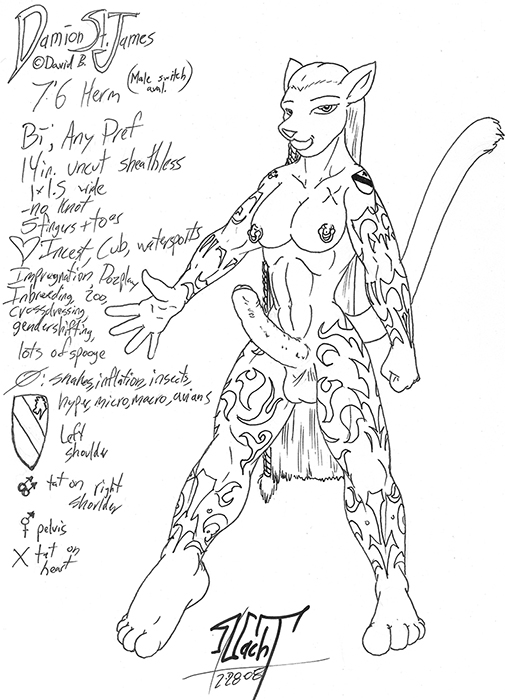 Damion St. James
©David B.
7'6 Herm (Male switch aval.)
Bi, Any Pref
14 in. uncut sheathless
1x1.5 wide
-no knot
5 fingers + toes
♡ Incest, Cub, watersports
Impregnation
Inbreeding, zoo,
crossdressing,
gendershifting,
lots of spooge
Ø: snakes, inflation, insects,
hyper, micro, macro, avians
left
shoulder
⚣ tat on right
shoulder
⚥ pelvis
X tat on
heart
22808